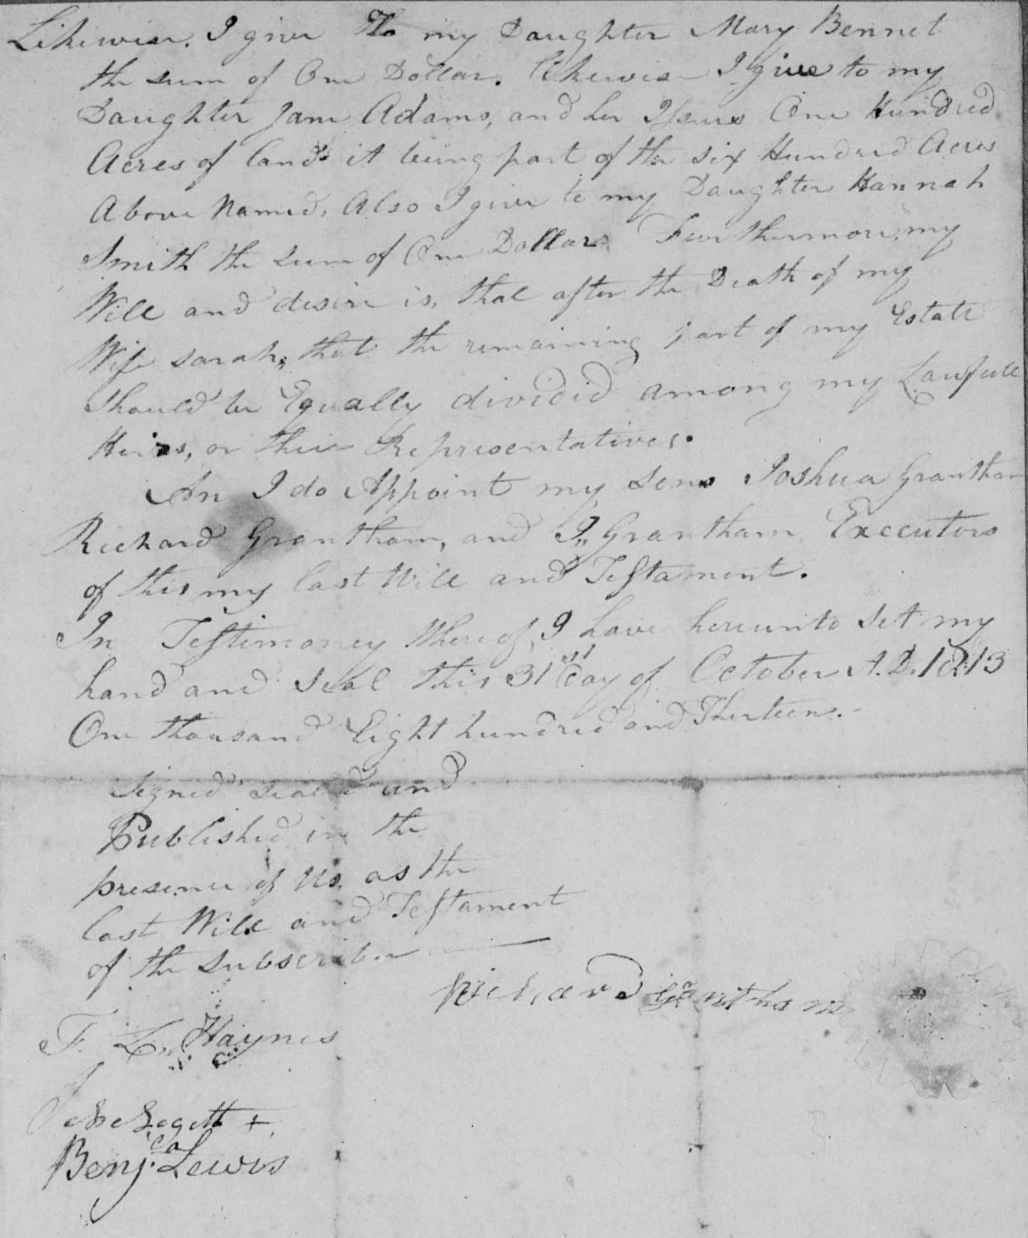 Likewise. I give To my Daughter Mary Bennet
the sum of One Dollar. Likewise I give to my
Daughter Jane Adams, and her Issues One Hundred
Acres of Lands it being part of the six Hundred Acres
Above Named, Also I give to my Daughter Hannah
Smith the sum of One Dollar Furthermore, my
Will and desire is, that after the Death of my
Wife Sarah, that the remaining part of my Estate
Should be Equally divided among my Lawfull
Heirs, or their Representatives.
An I do Appoint my Sons Joshua Grantham
Richard Grantham, and J. Grantham Executors
of this my last Will and Testament.
In Testimoney Whereof, I have hereunto Set my
hand and Seal this 31st day of October A.D. 1813
One thousand Eight hundred and Thirteen.
Signed Seald and
Published in the
presence of Us. as the
last Will and Testament
of the Subscriber
Richard Grantham
F. L. Haynes
Legett +
Benj.a Lewis